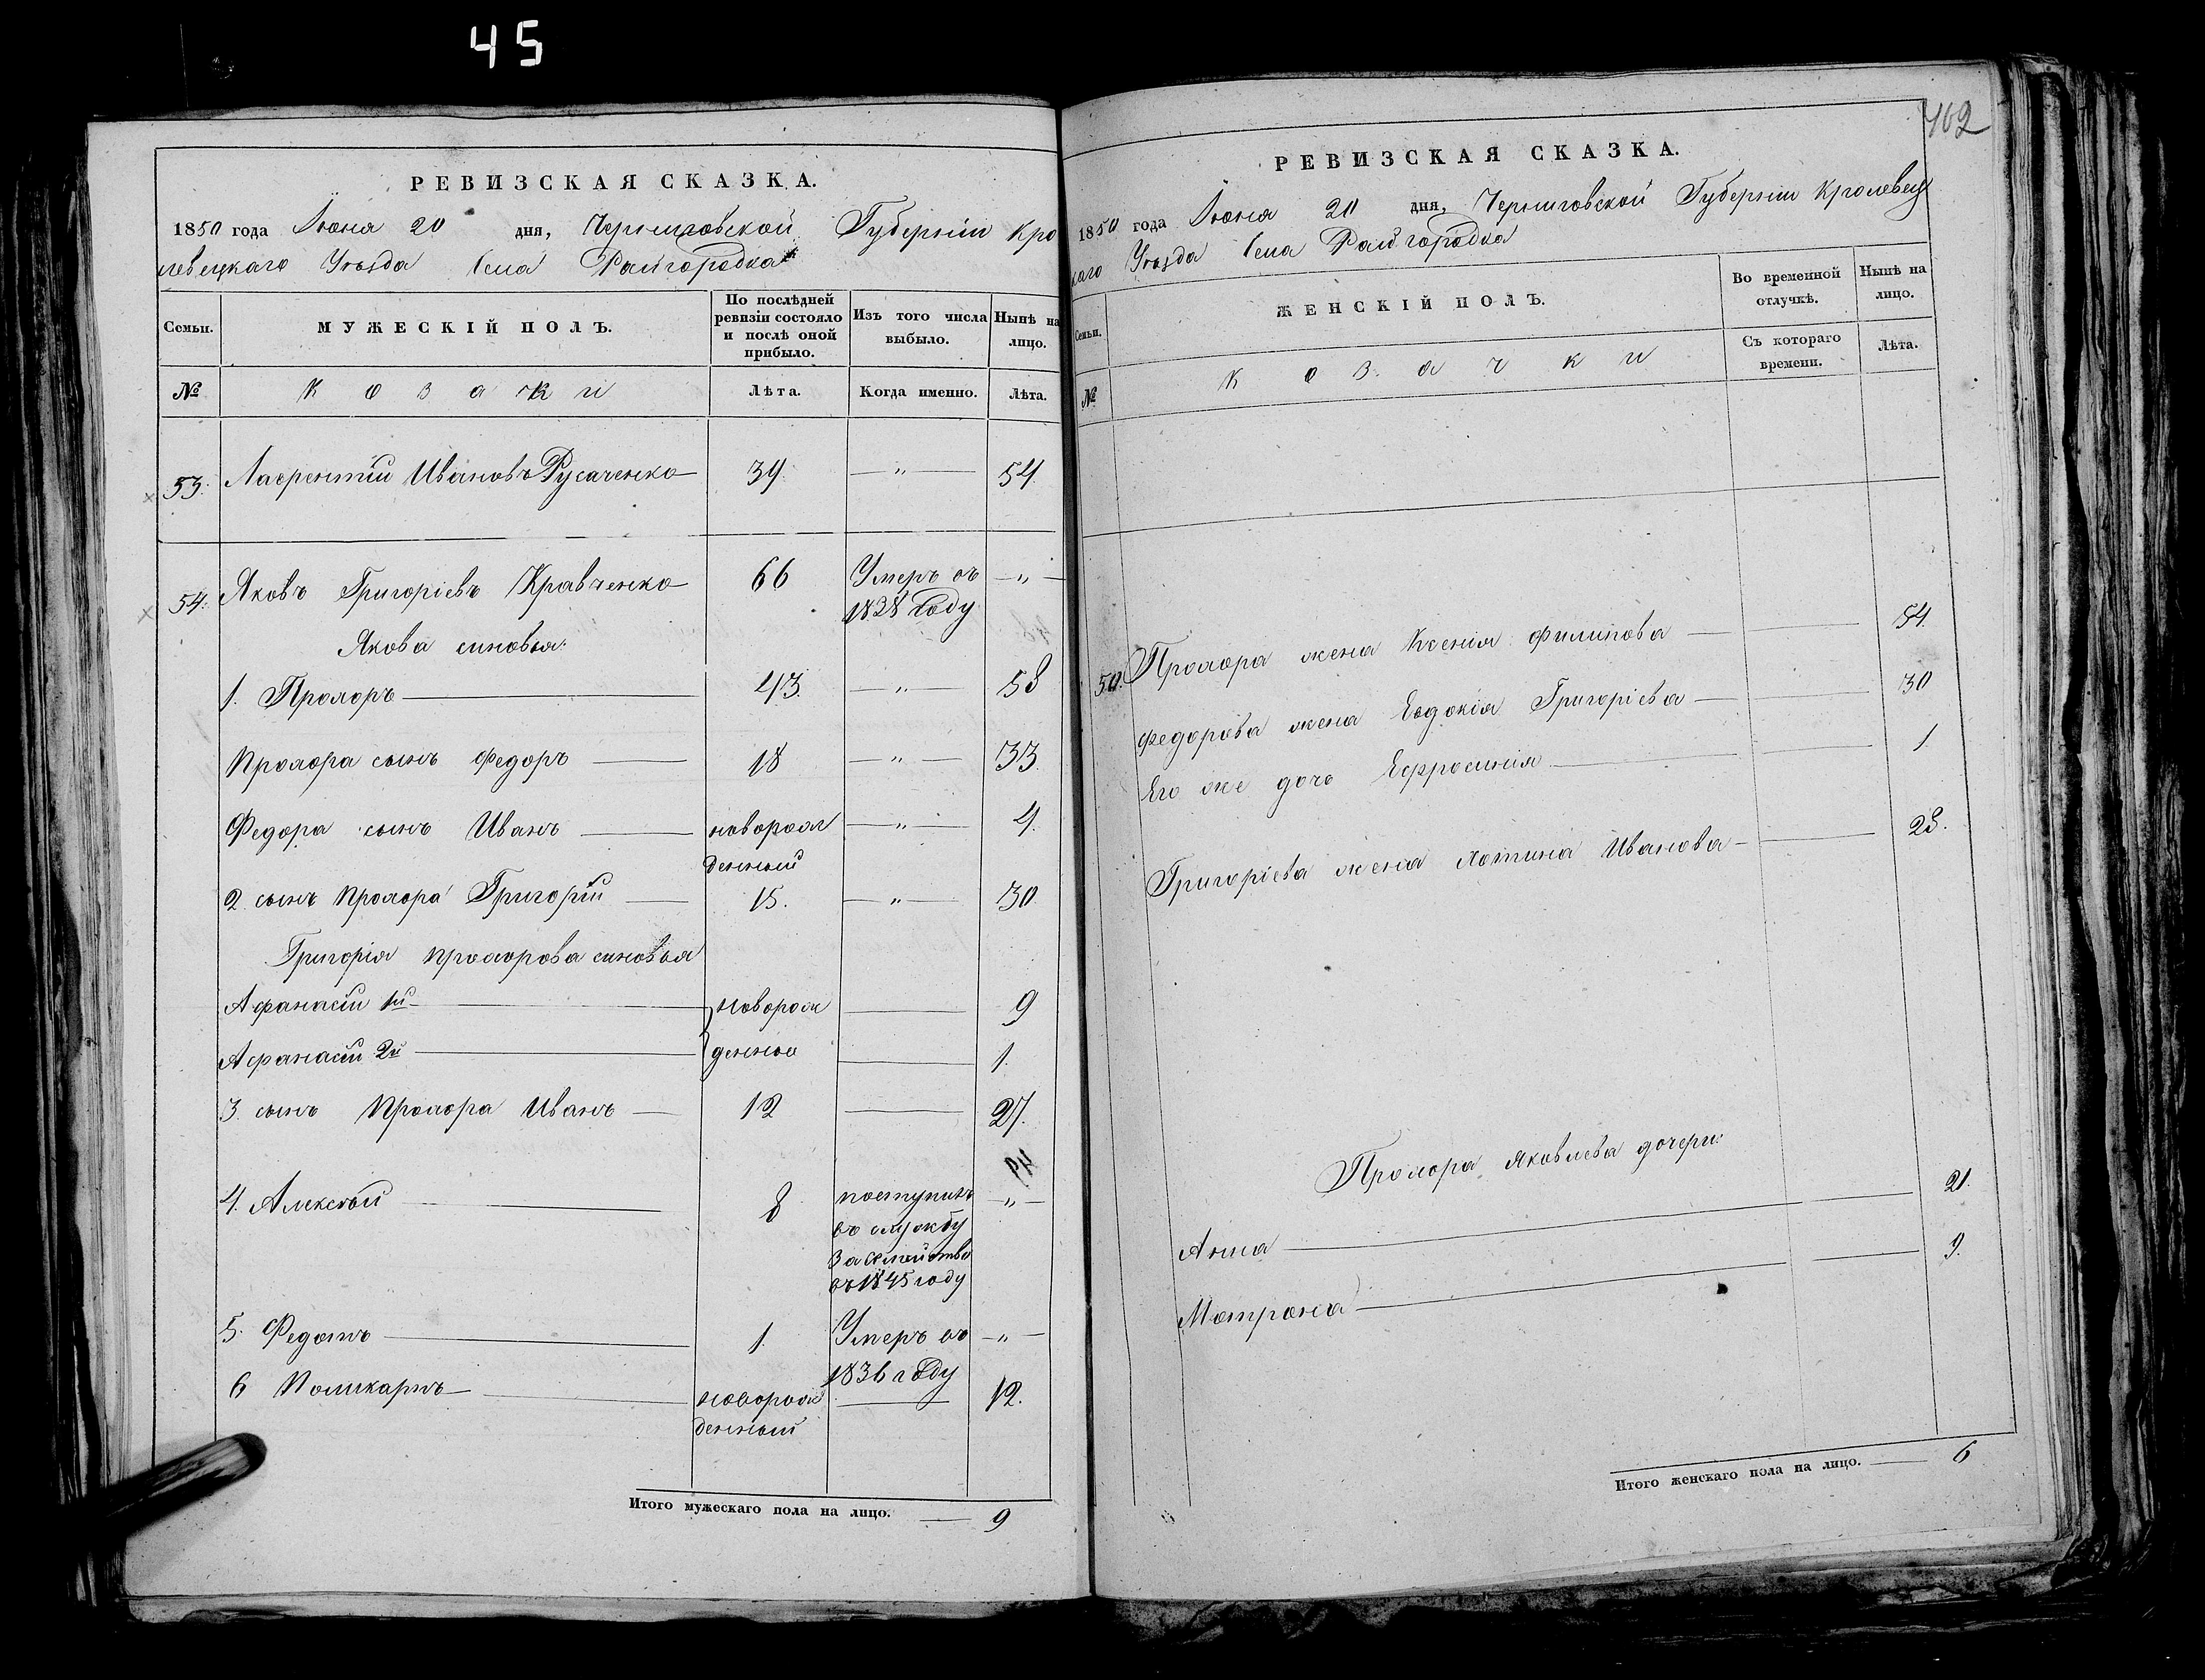 45
РЕВИЗСКАЯ СКАЗКА.
1850 года Июня 20 дня, Черниговской Губерніи Кро
левецкаго Уѣзда Села Райгородка
Семьи.
МУЖЕСКІЙ ПОЛЪ.
По послѣдней ревизіи состояло и послѣ оной прибыло.
Изъ того числа выбыло.
Нынѣ на лицо.
№
Козаки
Лѣта.
Когда именно.
Лѣта.
53. Лаврентій Ивановъ Русаченко 39 — „ — 54.
54. Яковъ Григоріевъ Кравченко 66 Умеръ въ — „ —
1828 году
Якова синовья:
1. Прохоръ 43. — „ — 58
Прохора сынъ Федоръ 18 — „ — 33.
Федора сынъ Иванъ новорож — „ — 4.
денный
2 сынъ Прохора Григорій 15. — „ — 30
Григорія Прохорова синовья
Афанасій 1й новорож — 9
Афанасій 2й денны — 1.
3. сынъ Прохора Иванъ 12 — 27.
4. Алексѣй 8 поступилъ — „ —
въ службу
за семейство
въ 1845 году
5. Федотъ 1. Умеръ въ — „ —
1836 году
6 Поликарпъ новорож — 12.
денный
Итого мужескаго пола на лицо. — 9
402
РЕВИЗСКАЯ СКАЗКА.
1850 года Июня 20 дня, Черниговской Губерніи Кролевец
каго Уѣзда Села Райгородка
Семьи.
ЖЕНСКІЙ ПОЛЪ.
Во временной отлучкѣ.
Нынѣ на лицо.
№
Козачки
Съ котораго времени.
Лѣта.
Прохора жена Ксенія Филипова — 54
Федорова жена Евдокія Григоріева — 30
Его же дочь Ефросинія — 1.
Григоріева жена Иванова — 28.
Прохора Яковлева дочери:
Анна — 21.
Матрона — 9.
Итого женскаго пола на лицо. — 6